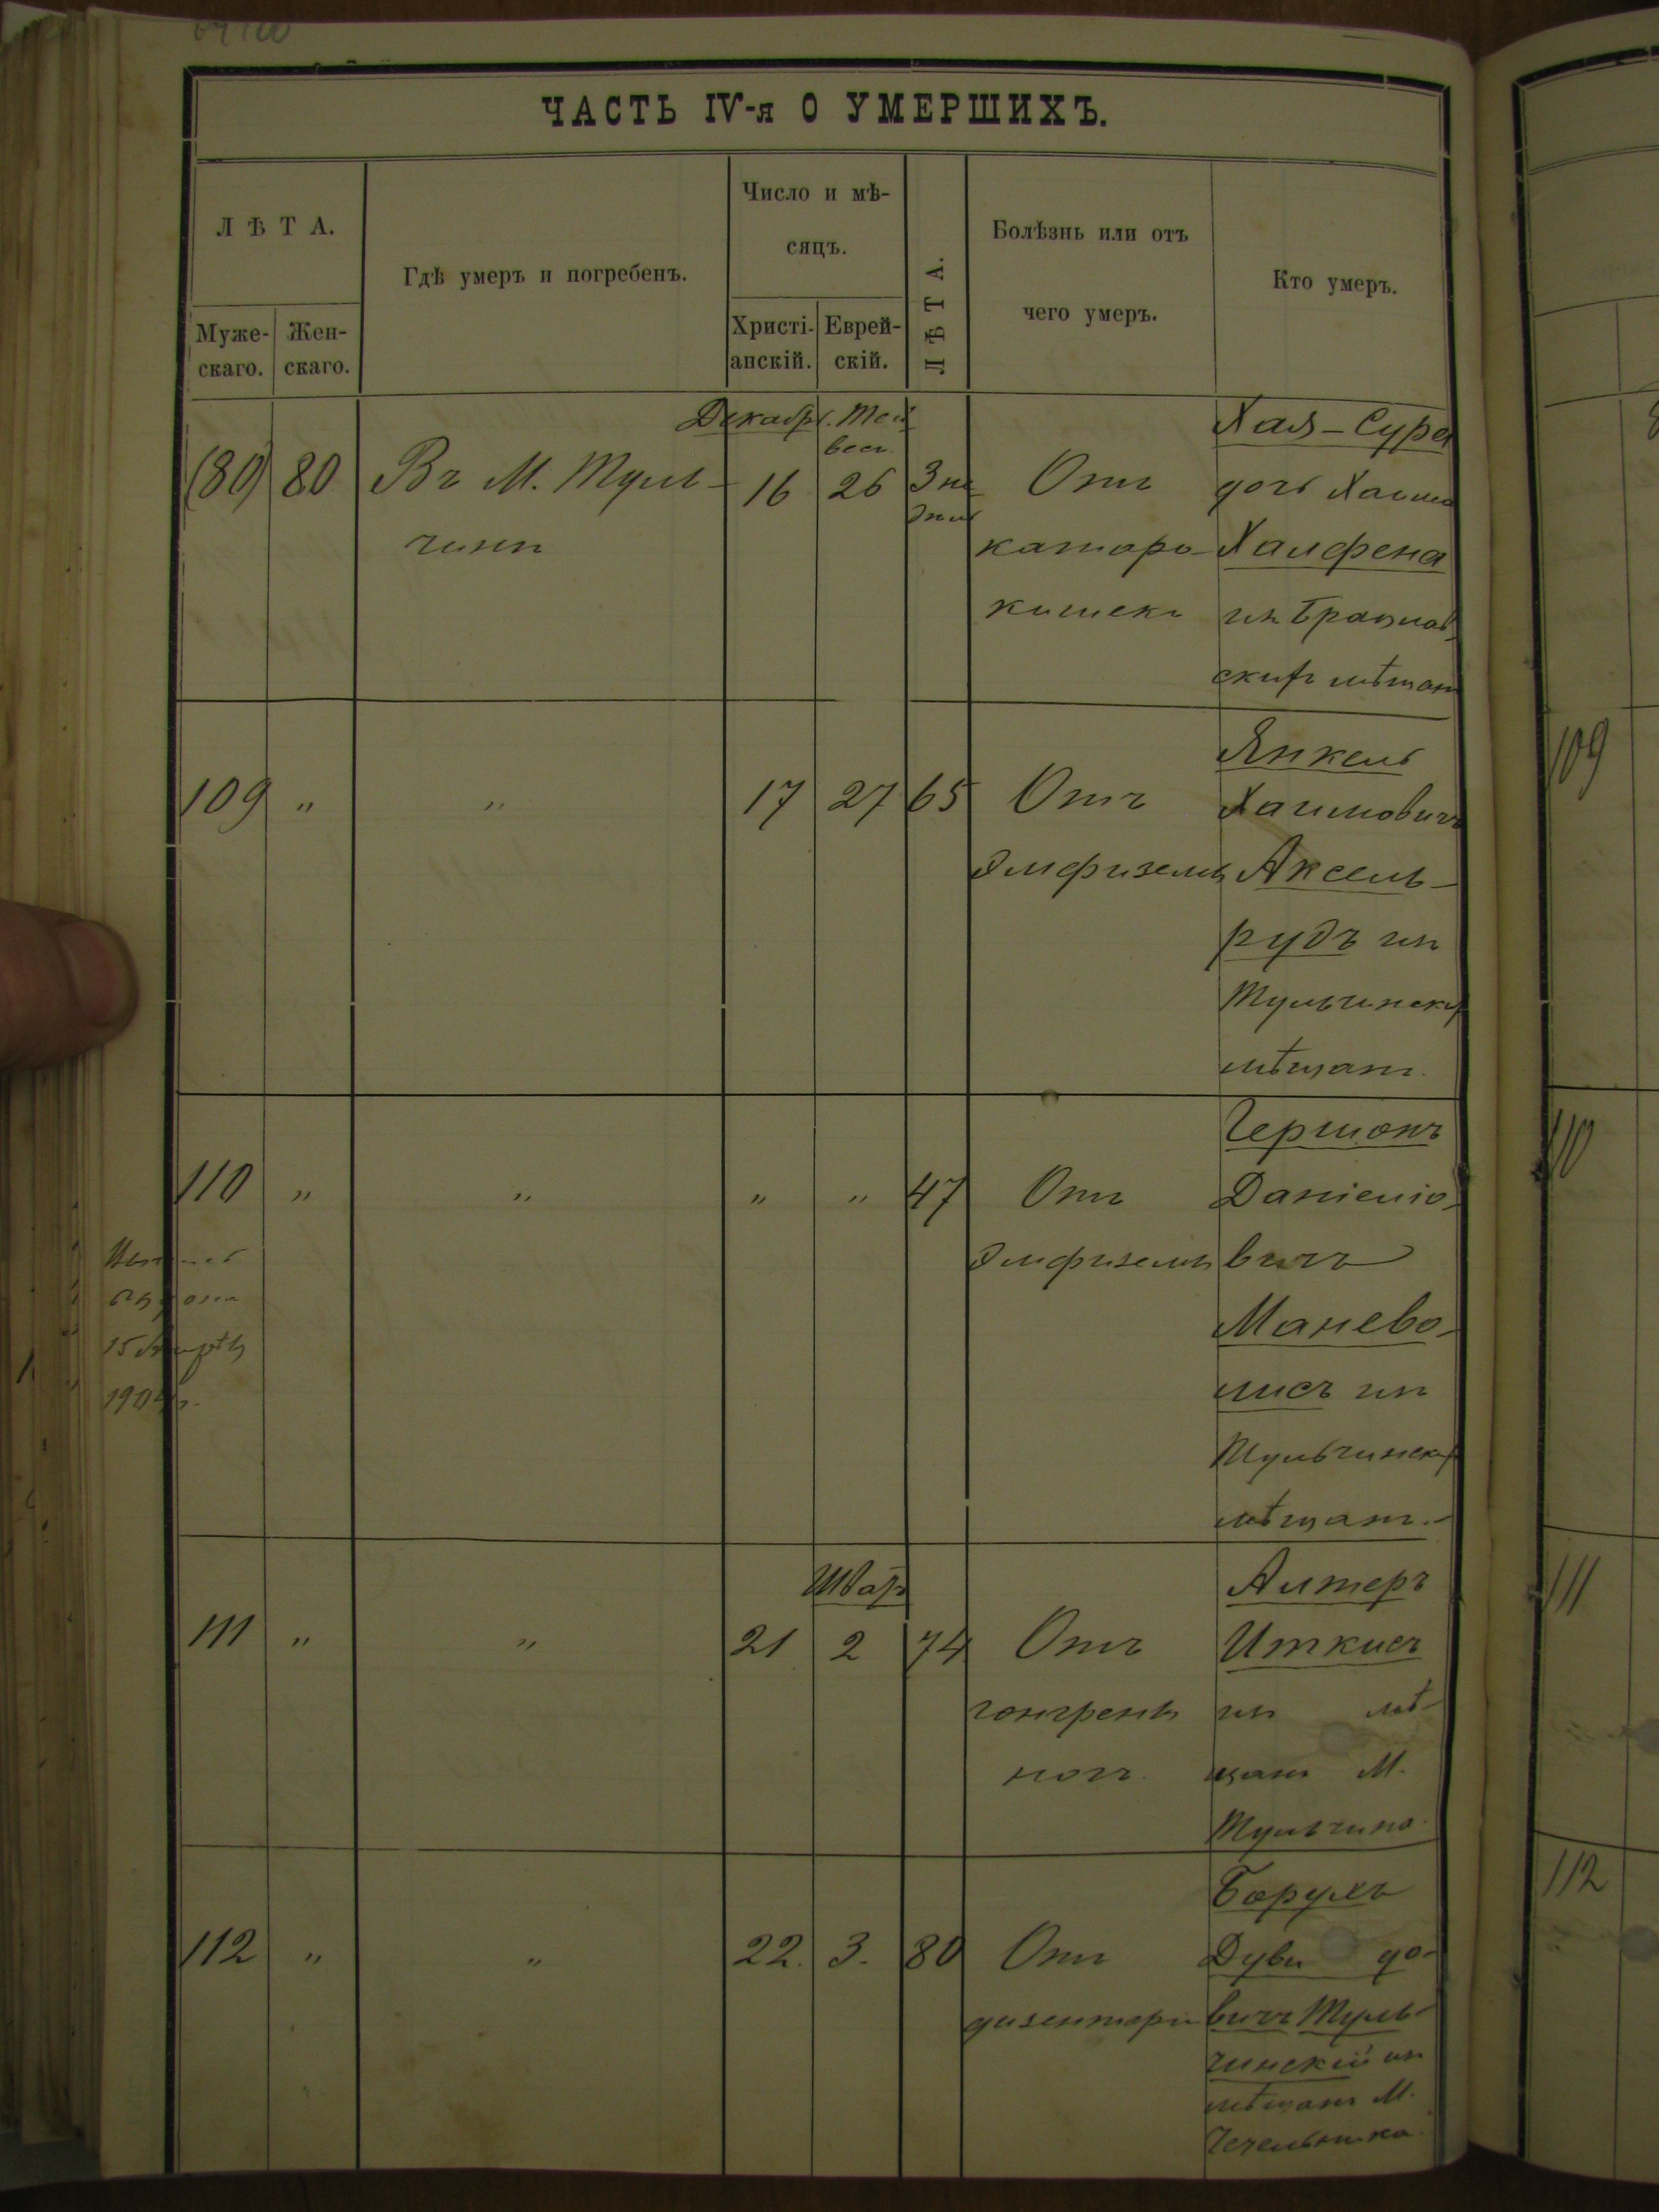 ЧАСТЬ IV-я О УМЕРШИХЪ.
ЛѢТА.
Муже-
скаго.
Жен-
скаго.
Гдѣ умеръ и погребенъ.
Число и мѣ-
сяцъ.
Христі-
анскій.
Еврей-
скій.
ЛѢТА.
Болѣзнь или отъ
чего умеръ.
Кто умеръ.
Декабр. Тей
вес.
(80) 80 Въ М. Туль-
чинѣ
16 26
Отъ
катара
кишекъ
Хая-Сура
дочь Хаима
Халфена
изъ Брацлав
скихъ мѣщан
109 „ „ 17 27 65 Отъ
эмфиземы
Янкель
Хаимовичъ
Аксель-
рудъ изъ
Тульчинских
мѣщанъ.
110 „ „ „ „ 47 Отъ
эмфиземы
Гершонъ
Даніеліо-
вичъ
Манево-
лисъ изъ
Тульчинских
мѣщанъ.-
Шватъ
111 „ „ 21 2 74 Отъ
гонгрены
ногъ.
Алтеръ
Иткисъ
изъ мѣ-
щанъ М.
Тульчина.
112 „ „ 22. 3. 80 Отъ
дизентеріи
Борухъ
Дуви до-
вичъ Туль-
чинскій изъ
мѣщанъ М.
Чечельника.
109
110
111
112